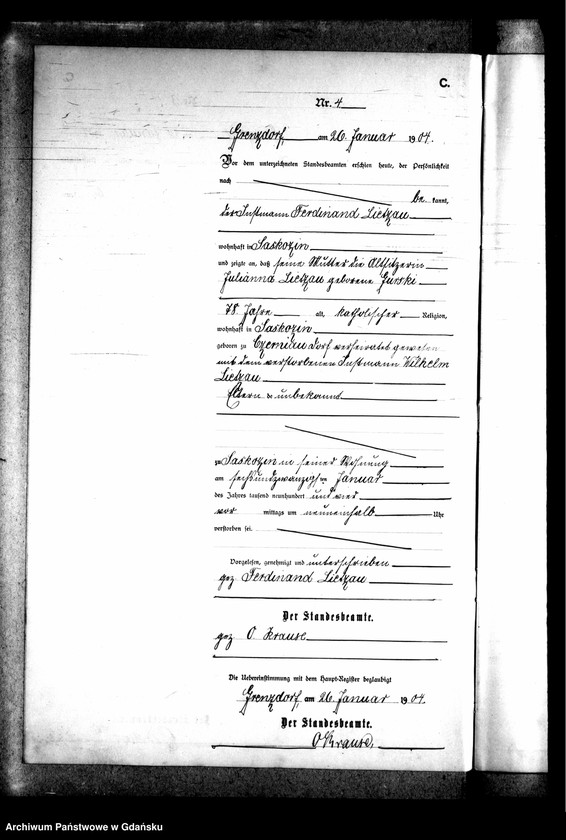 C.
Nr. 4
Grenzdorf, am 26. Januar 1904.
Vor dem unterzeichneten Standesbeamten erschien heute, der Persönlichkeit
nach
be kannt,
der Instmann Ferdinand Lietzau
wohnhaft in Saskozin
und zeigte an, daß seine Mutter die Altsitzerin
Julianna Lietzau geborene Gurski
78 Jahre alt, katholischer Religion,
wohnhaft in Saskozin
geboren zu Czerniau Dorf verheiratet gewesen
mit dem verstorbenen Instmann Wilhelm
Lietzau
Eltern unbekannt
zu Saskozin in seiner Wohnung
am sechsundzwanzigsten Januar
des Jahres tausend neunhundert und vier
vor mittags um neuneinhalb Uhr
verstorben sei.
Vorgelesen, genehmigt und unterschrieben
gez Ferdinand Lietzau
Der Standesbeamte.
gez O. Krause
Die Uebereinstimmung mit dem Haupt-Register beglaubigt
Grenzdorf, am 26. Januar 1904.
Der Standesbeamte.
O Krause.
Archiwum Państwowe w Gdańsku